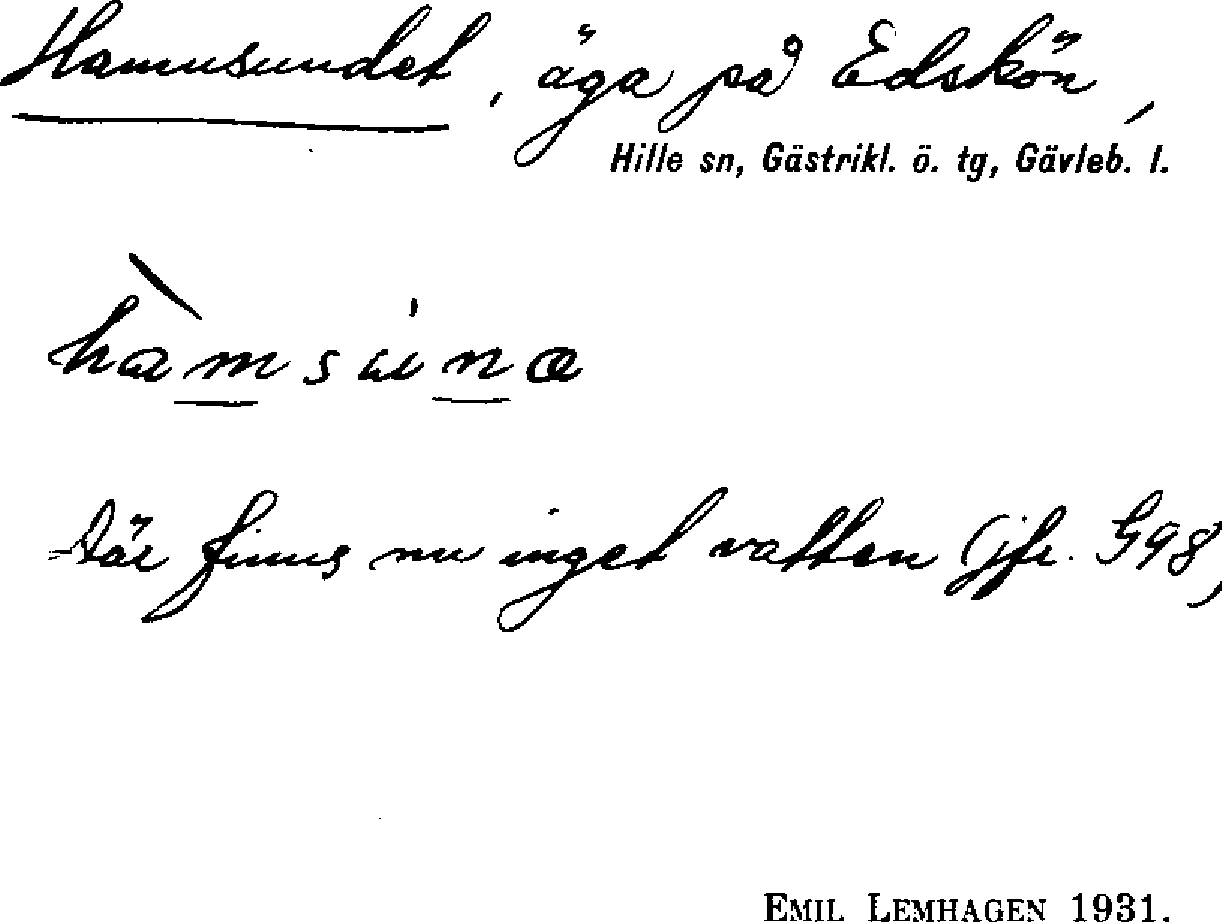 Hamnsundet, äga på Edskön,
Hille sn, Gästrikl. ö. tg, Gävleb. l.
Där finns nu inget vatten (jfr. G98,
EMIL LEMHAGEN 1931.